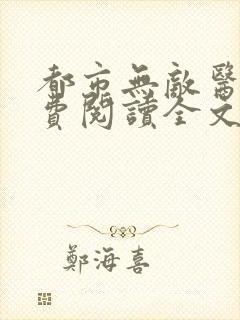 都市無敵醫
費閱讀全文
鄭海喜